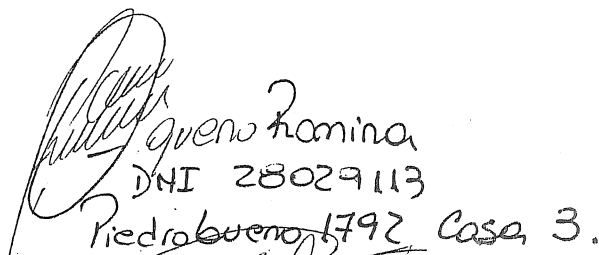 Romina
DNI 28029113
Piedrabuena 1792 Casa 3.